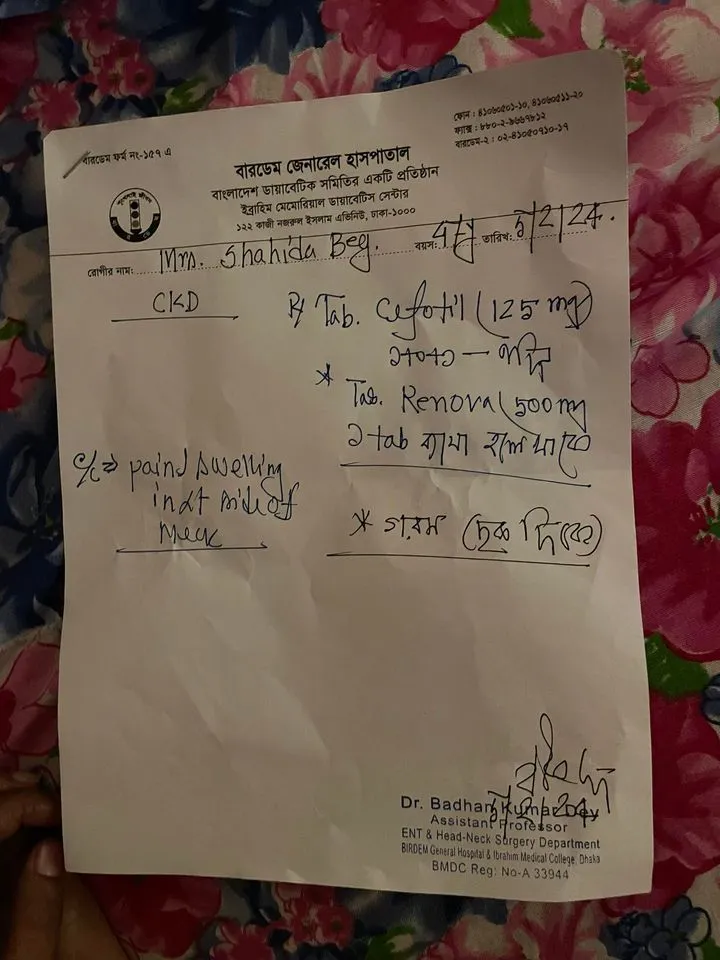 বারডেম ফর্ম নং-১৫৭ এ
ফোন : ৪১০৬০৫০১-১০, ৪১০৬০৫১১-২০
ফ্যাক্স : ৮৮০-২-৯৬৬৭৮১২
বারডেম-২ : ০২-৪১০৫০৭১০-১৭
বারডেম জেনারেল হাসপাতাল
বাংলাদেশ ডায়াবেটিক সমিতির একটি প্রতিষ্ঠান
ইব্রাহিম মেমোরিয়াল ডায়াবেটিস সেন্টার
১২২ কাজী নজরুল ইসলাম এভিনিউ, ঢাকা-১০০০
রোগীর নাম: Mrs. Shahida Beg. বয়স: তারিখ: /2/24.
CKD
Tab. Cefotil (125 mg)
১+০+১ —
* Tab. Renova (500 mg
১ tab ব্যথা হলে
c/c pain swelling
in side of
neck
* গরম ছেক
Dr. Badhan Kumar Dey
Assistant Professor
ENT & Head-Neck Surgery Department
BIRDEM General Hospital & Ibrahim Medical College, Dhaka
BMDC Reg: No-A 33944